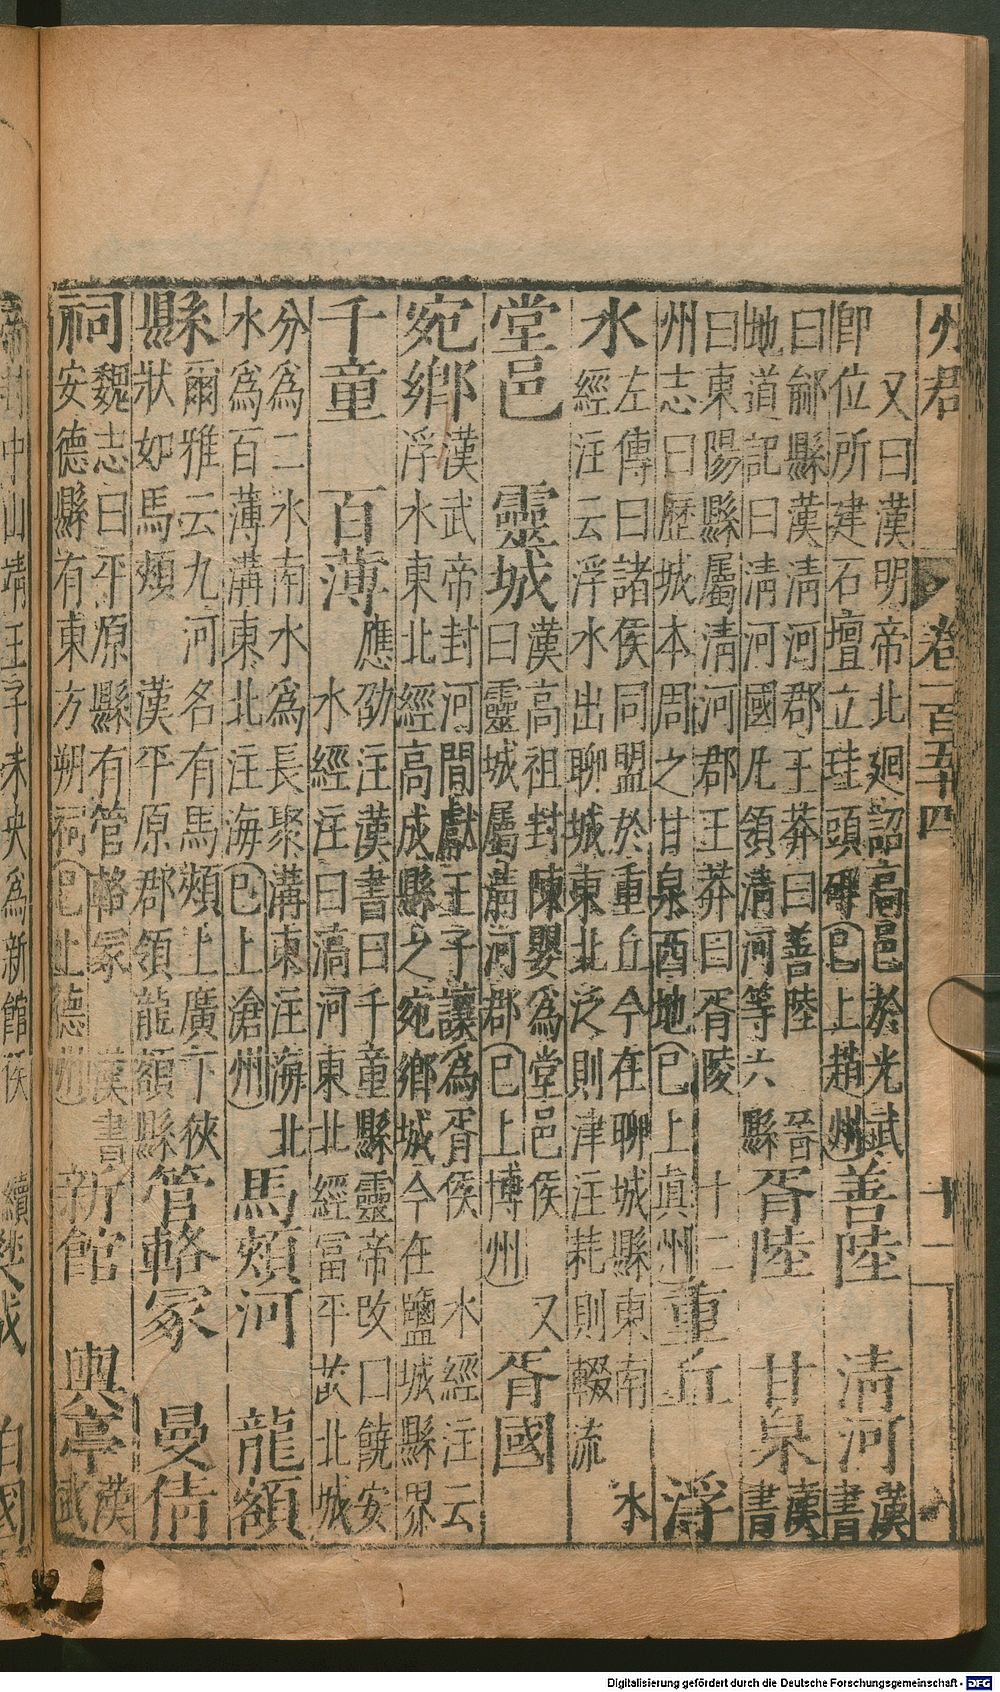 州郡 卷一百五十四 十一
又曰漢明帝北廻詔高邑於光武
即位所建石壇立珪頭碑已上趙州
善陸 清河
漢
書
曰鄃縣漢清河郡王莽曰善陸 晉
地道記曰清河國凡領清河等六縣
胥陸 甘泉
漢
書
曰東陽縣屬清河郡王莽曰胥陵 十二
州志曰歷城本周之甘泉酉地已上真州
重丘 浮
水
左傳曰諸侯同盟於重丘今在聊城縣東南 水
經注云浮水出聊城東北泛則津注耗則輟流
堂邑 靈城
漢高祖封陳嬰為堂邑侯 又
曰靈城屬清河郡已上博州
胥國
宛鄉
漢武帝封河間獻王子讓為胥侯 水經注云
浮水東北經高成縣之宛鄉城今在鹽城縣界
千童 百薄
應劭注漢書曰千童縣靈帝改曰饒安
水經注曰滳河東北經富平故北城
分為二水南水為長聚溝東注海北
水為百薄溝東北注海已上滄州
馬頰河 龍額
縣
爾雅云九河名有馬頰上廣下狹
狀如馬頰 漢平原郡領龍額縣
管輅冢 曼倩
祠
魏志曰平原縣有管輅冢 漢書
安德縣有東方朔祠已上德州
新館 輿亭
漢
武
帝封中山靖王子未央為新館侯
Digitalisierung gefördert durch die Deutsche Forschungsgemeinschaft - DFG